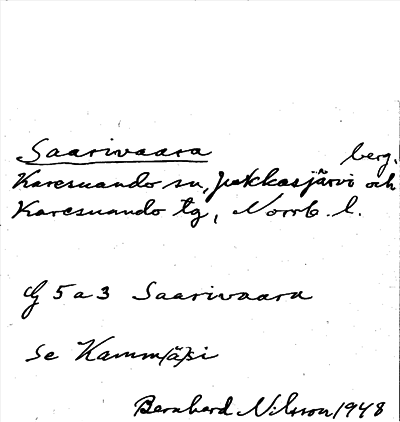 Saarivaara berg.
Karesuando sn, Jukkasjärvi och
Karesuando tg, Norrb. l.
Cf 5 a 3 Saarivaara
Se Kamm(ä)si
Bernhard Nilsson 1948